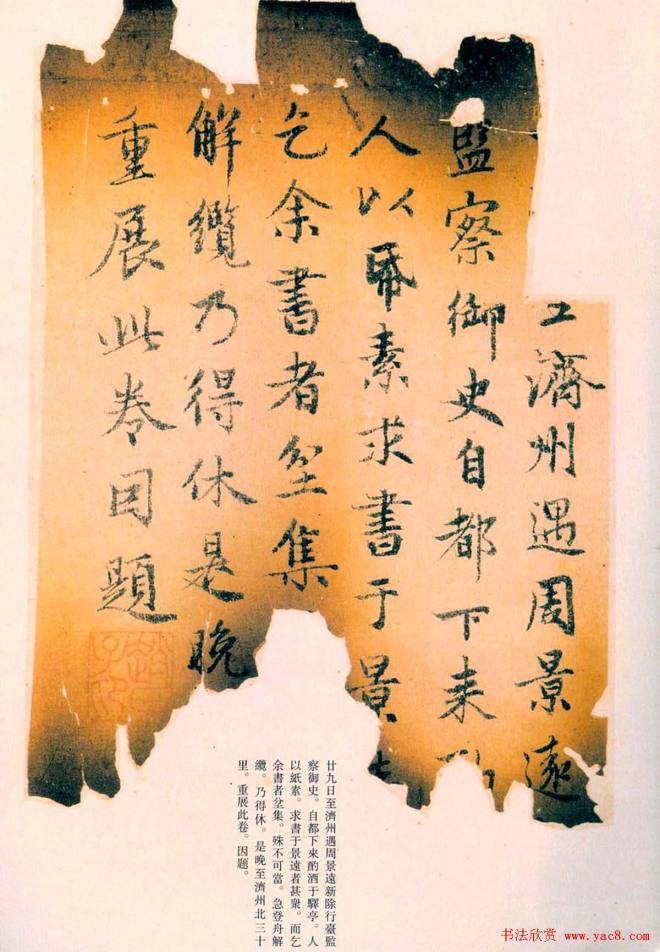 至濟州遇周景遠
監察御史自都下来酌
人以帋素求書于景遠
乞余書者坌集
解纜乃得休是晚
重展此卷因題
廿九日至濟州遇周景遠新除行臺監
察御史。自都下來酌酒于驛亭。人
以紙素。求書于景遠者甚衆。而乞
余書者坌集。殊不可當。急登舟解
纜。乃得休。是晚至濟州北三十
里。重展此卷。因題。
书法欣赏 www.yac8.com